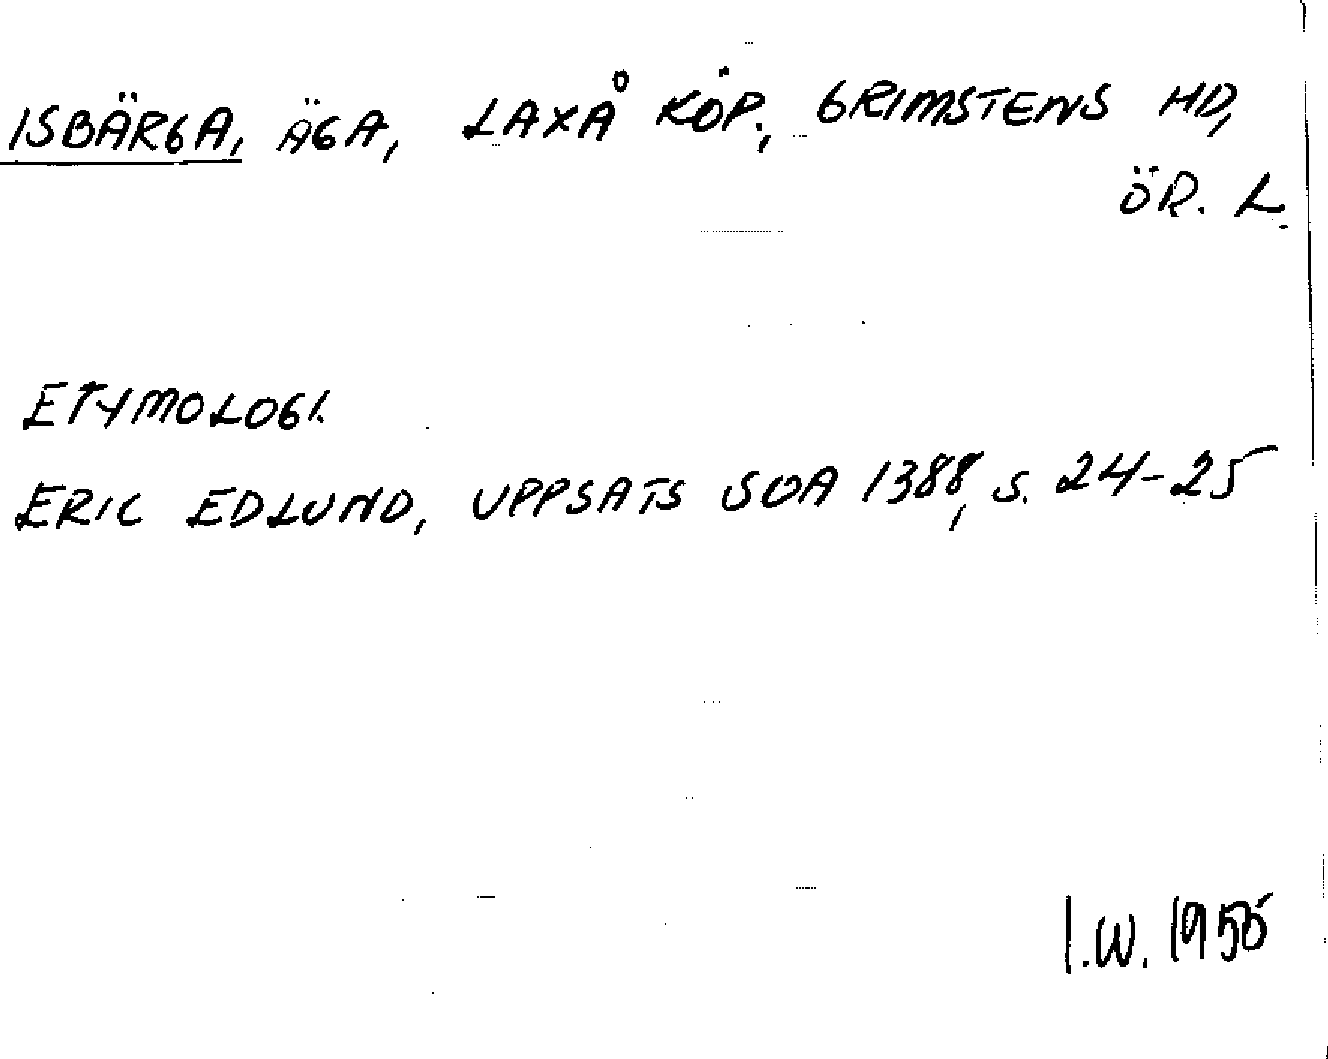 ISBÄRGA, ÄGA, LAXÅ KÖP., GRIMSTENS HD,
ÖR. L.
ETYMOLOGI.
ERIC EDLUND, UPPSATS SOA 1388, S. 24-25
I.W. 1955